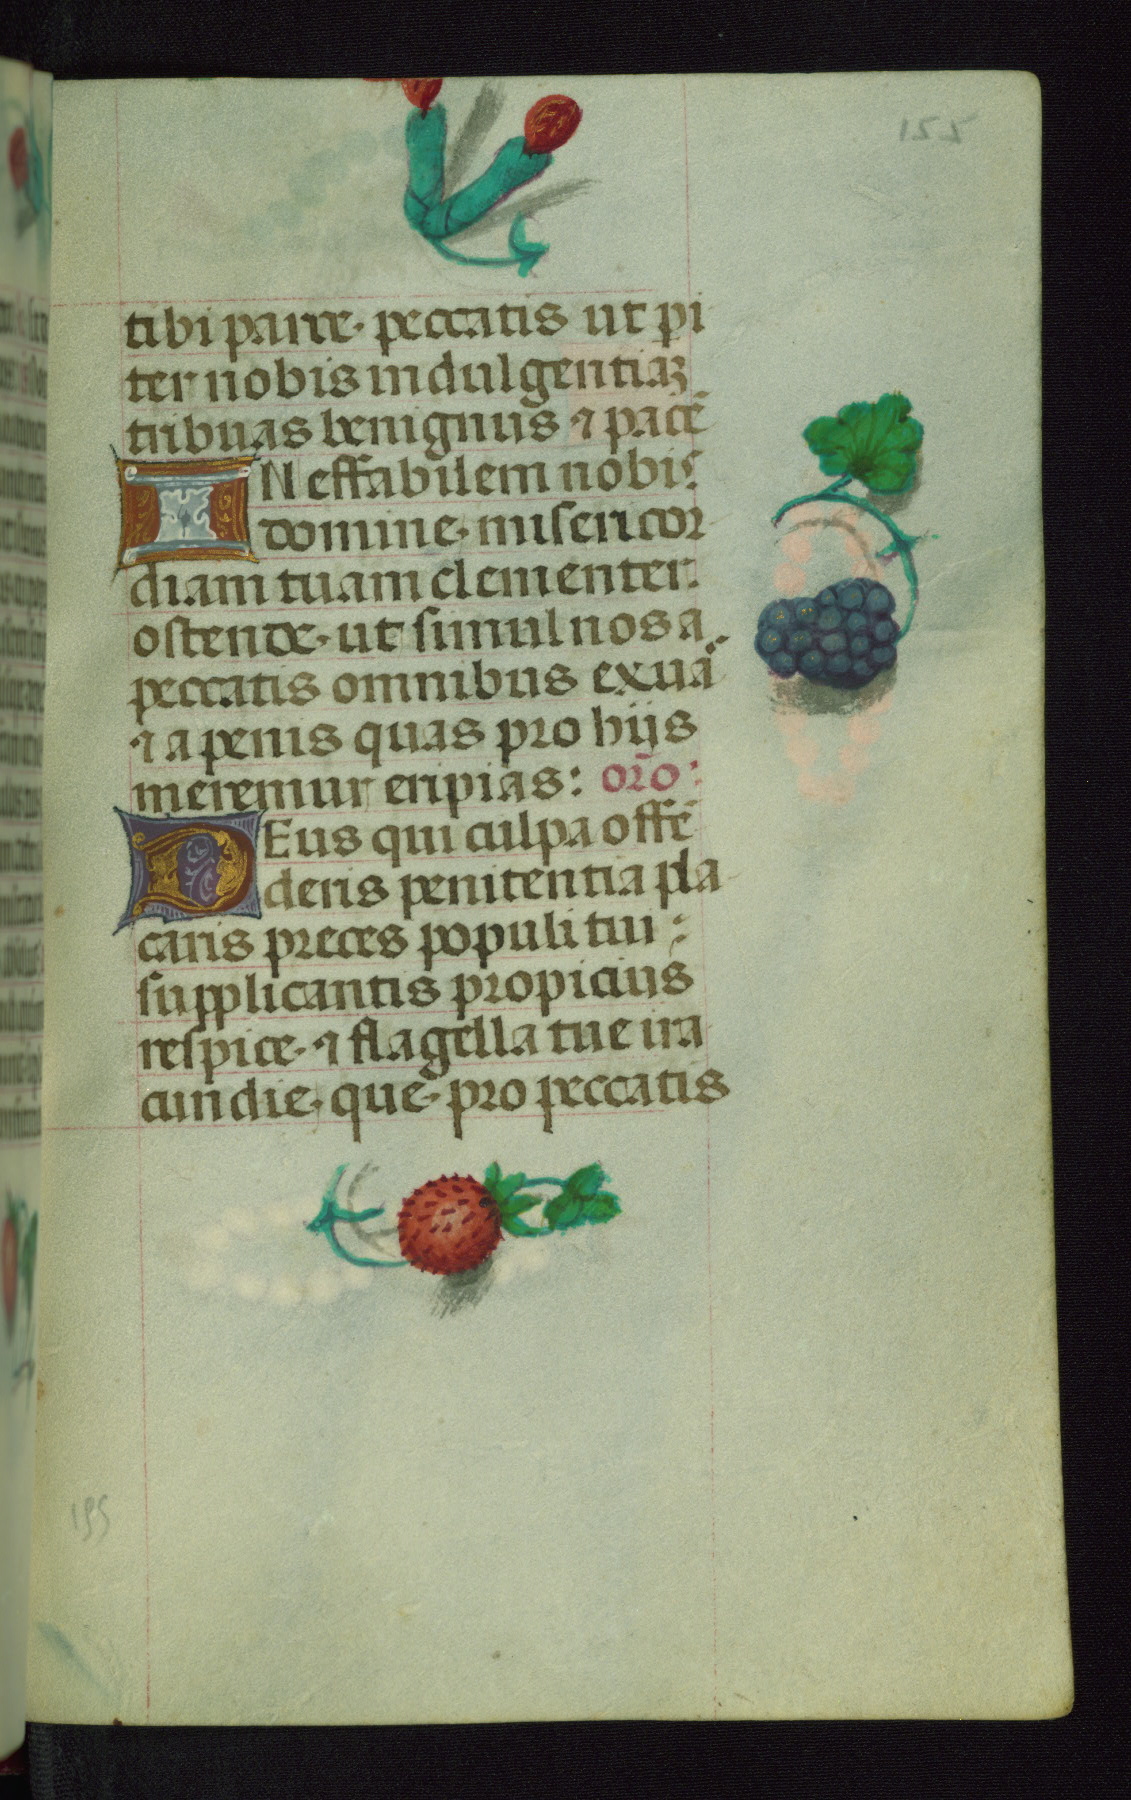 tibi parce· peccatis ut pi
ter nobis indulgentiaʒ
tribuas benignus ⁊ pacē
IN effabilem nobis
domine· misericor
diam tuam clementer
ostende· ut simul nos a
peccatis omnibus exuā
⁊ a penis quas pro hijs
meremur eripias: or̄o:
DEus qui culpa offē
deris penitentia pla
caris preces populi tui :
supplicantis propicius
respice· ⁊ flagella tue ira
cundie· que· pro peccatis
195